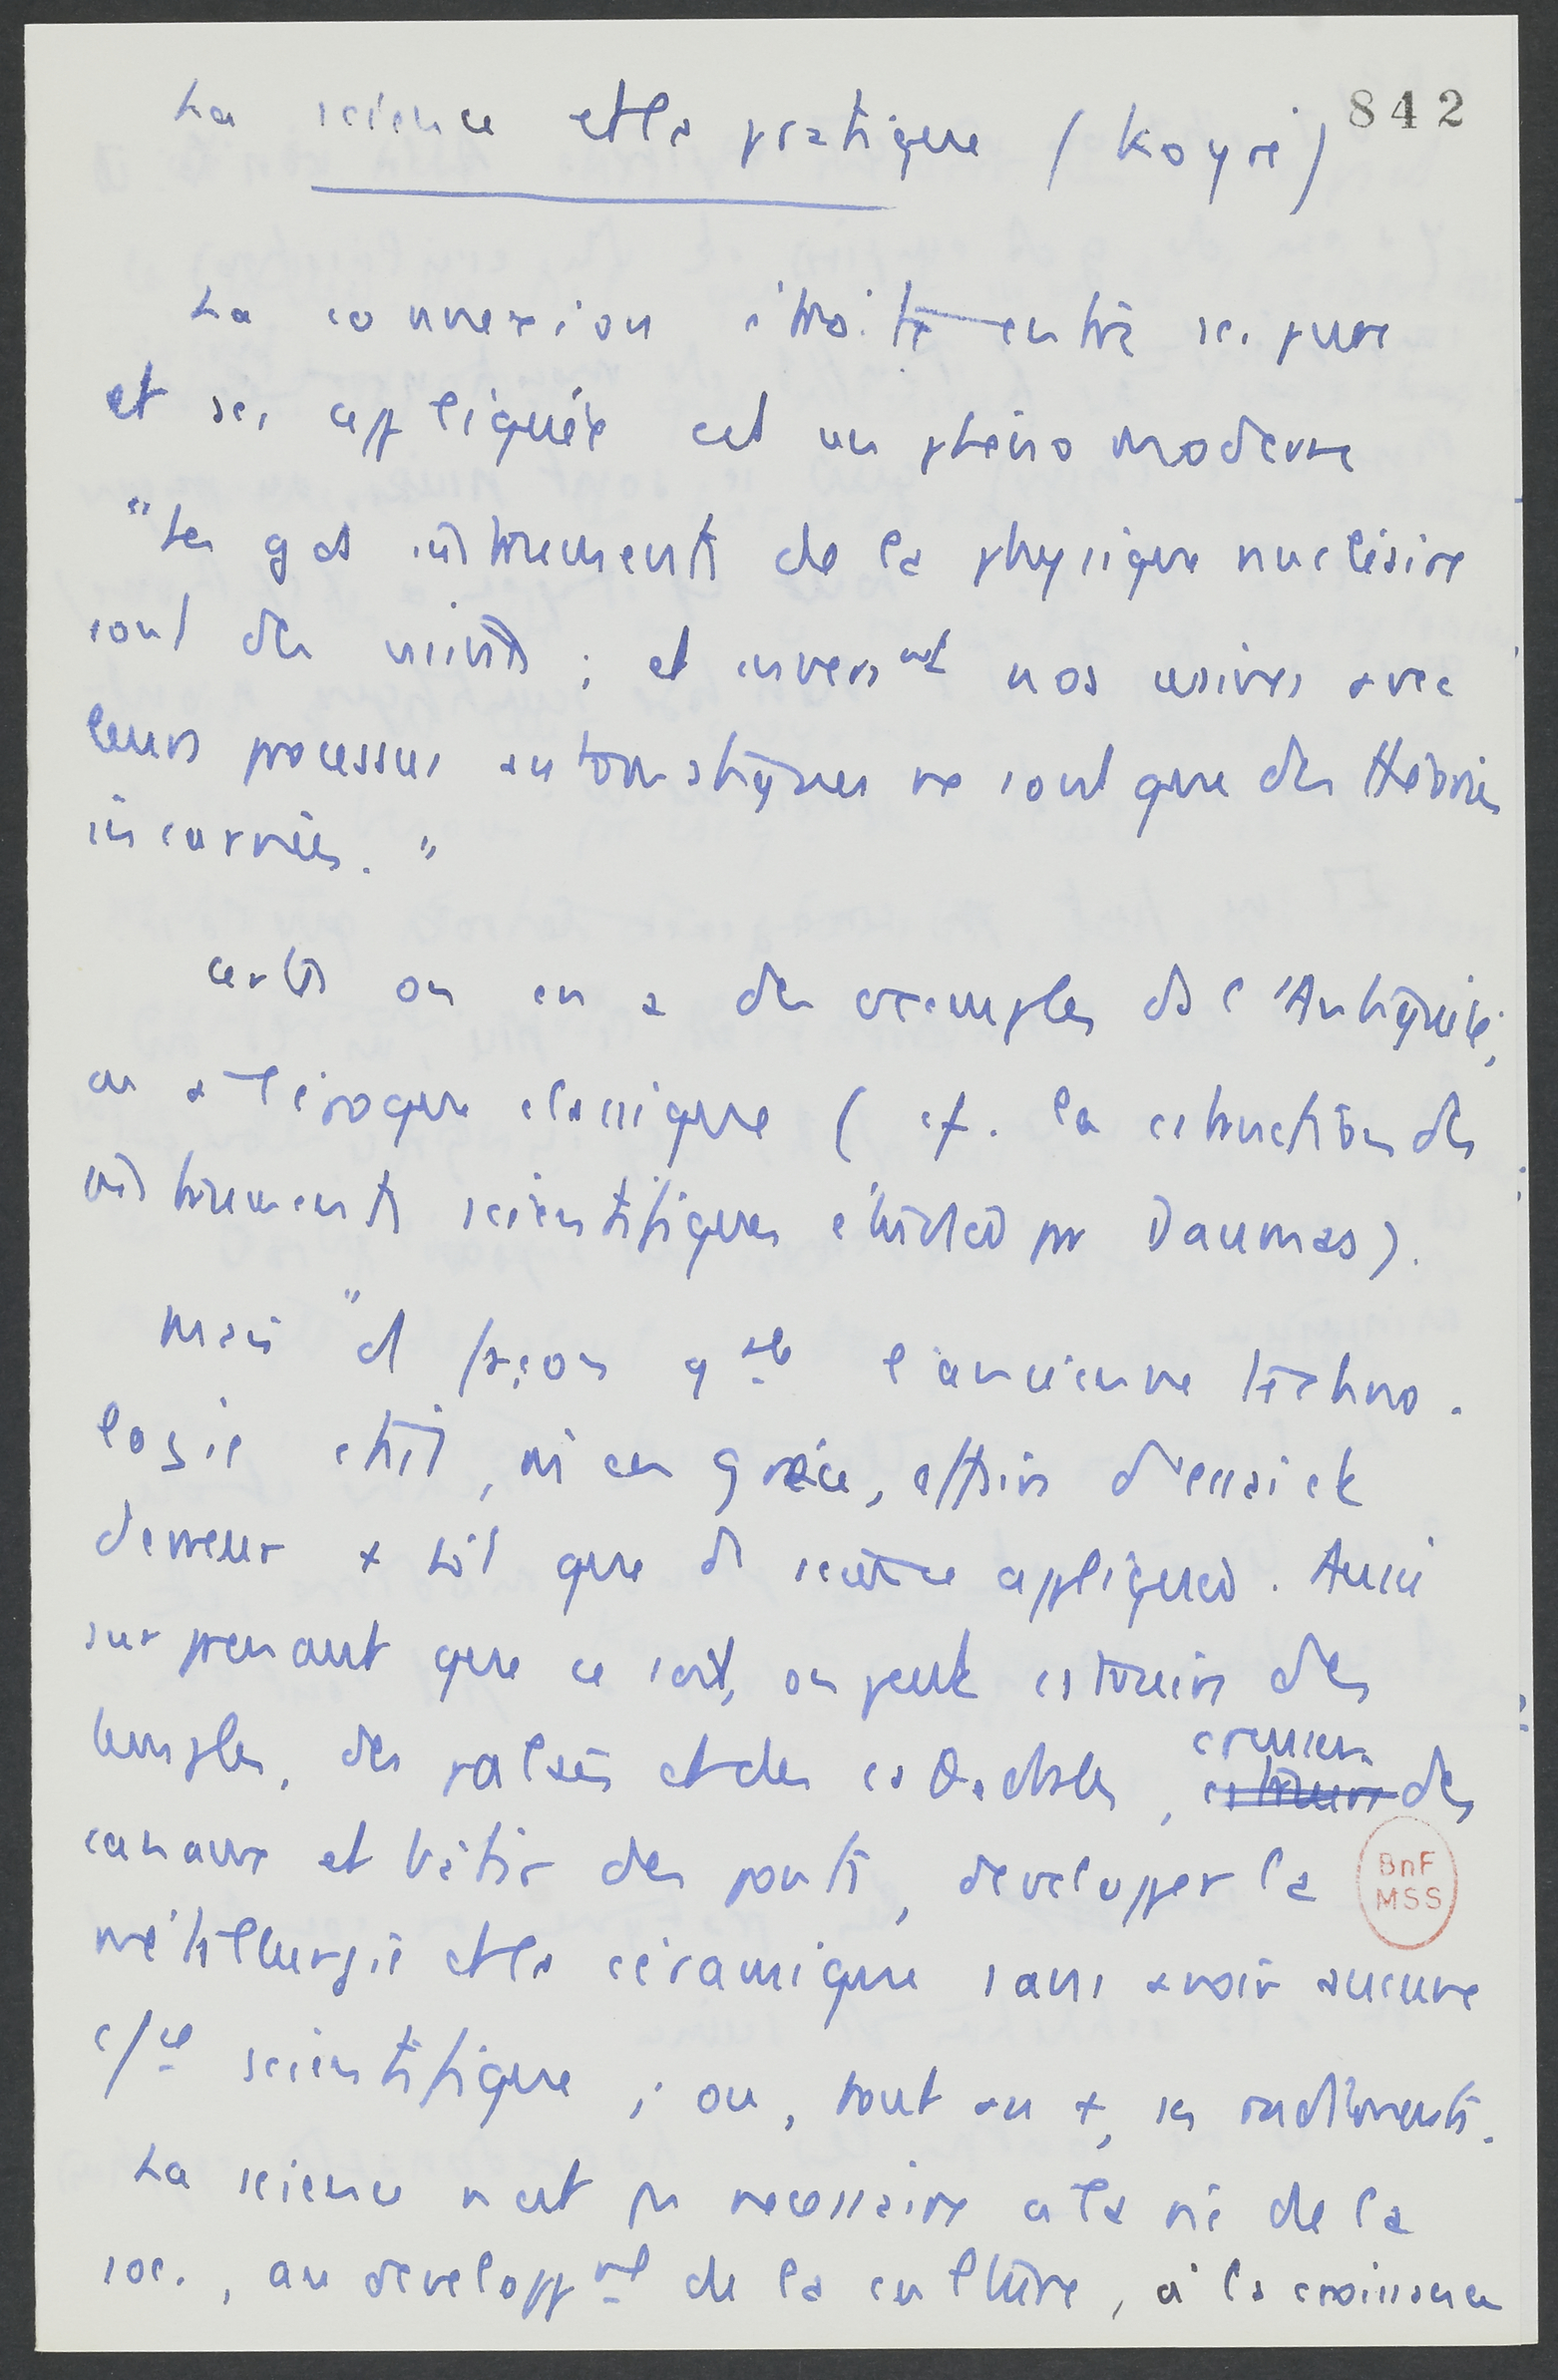 842
La science et la pratique (Koyré)
La connexion étroite entre sc. pure
et sc. appliquée est un phéno moderne
"Les gds instruments de la physique nucléaire
sont des usines ; et inversmt nos usines avec
leurs processus automatiques ne sont que des théories
incarnées."
certes on en a des exemples ds l'Antiquité,
ou à l'époque classique (cf. la cstruction des
instruments scientifiques étudiée par Daumas).
Mais "d façon gale l'ancienne techno-
logie était, m en Grèce, affaire d'essai et
d'erreur + tôt que d science appliquée. Aussi
surprenant que ce soit, on peut cstruire des
temples, des palais et des cathédrales, creuser des
canaux et bâtir des ponts, developper la
métallurgie et la céramique sans avoir aucune
c/ce scientifique ; ou, tout au +, ses rudiments.
La science n'est pas necessaire à la vie de la
soc., au developpmt de la culture, à la croissance
BnF
MSS